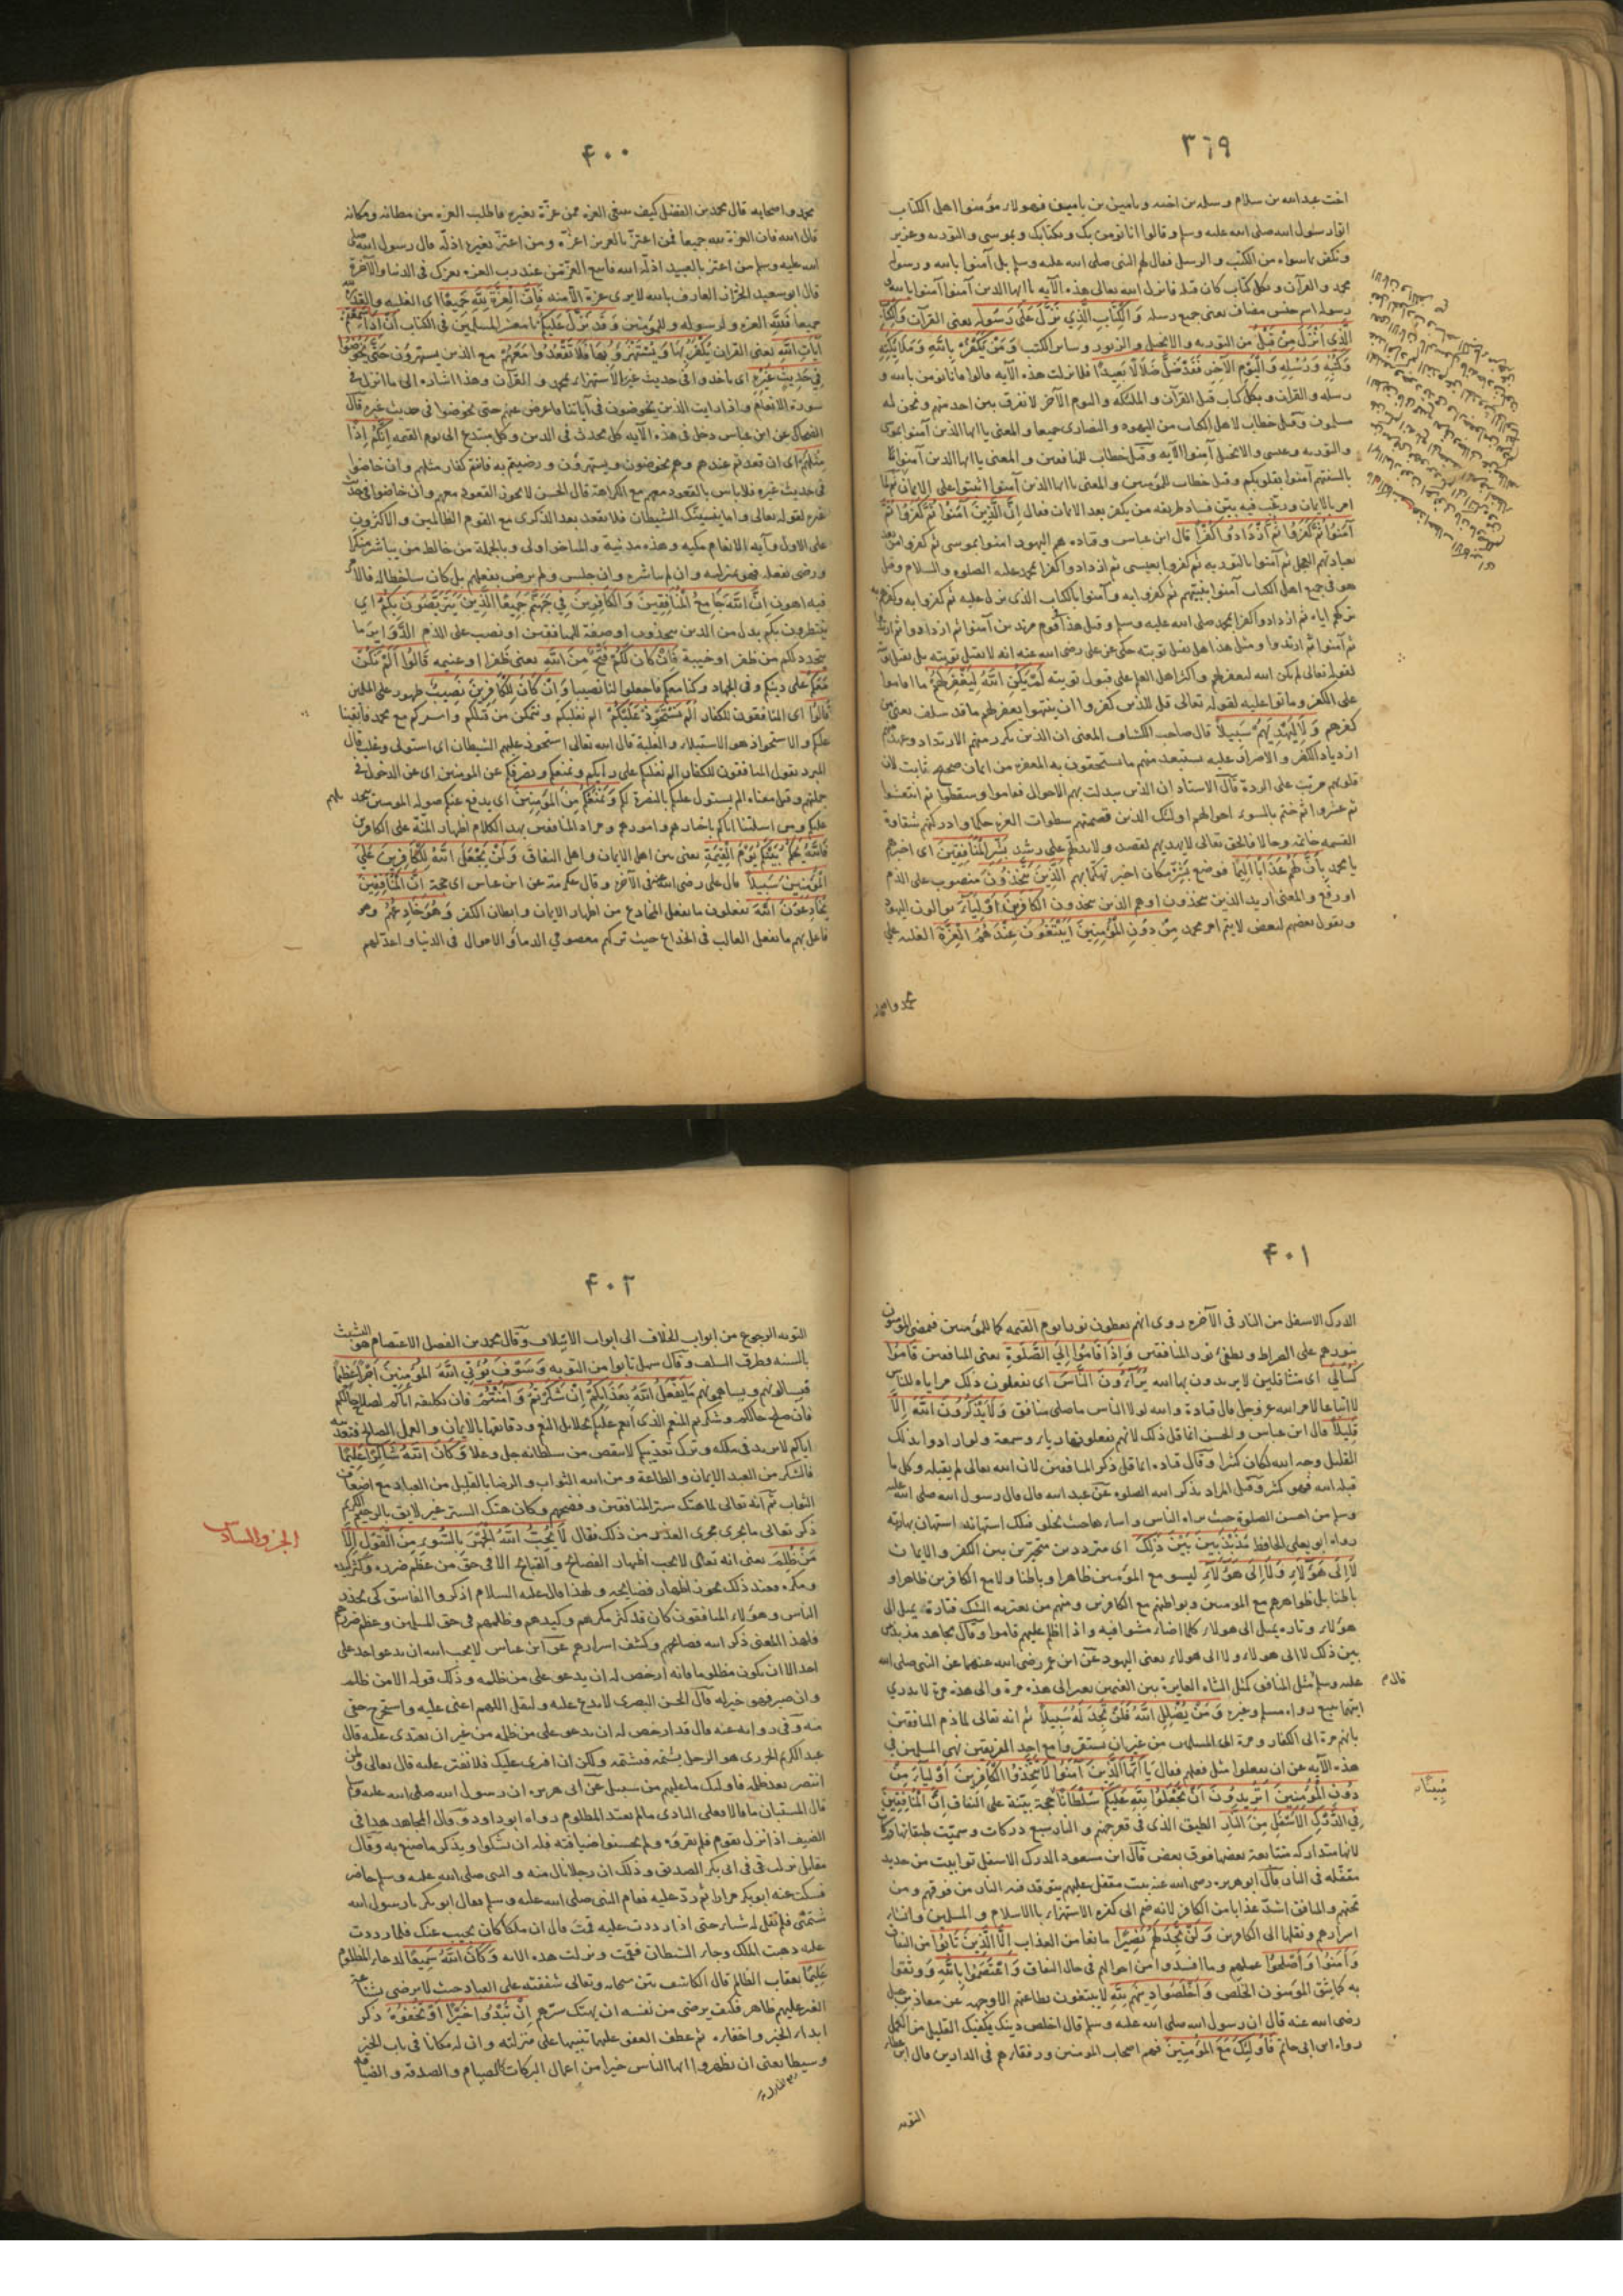 ٣٦٩
اخت عبد الله بن سلام وسلمة بن اخيه ويامين بن يامين فهؤلاء مؤمنوا اهل الكتاب
اتوا رسول الله صلى الله عليه وسلم وقالوا انا نؤمن بك وبكتابك وبموسى والتوريه وعزير
ونكفر بما سواه من الكتب والرسل فقال لهم النبى صلى الله عليه وسلم بل آمنوا بالله ورسوله
محمد والقرآن وبكل كتاب كان قبله فانزل الله تعالى هذه الآيه يا ايها الذين آمنوا آمنوا بالله و
رسوله اسم جنس مضاف يعنى جميع رسله وَالْكِتَابِ الَّذِي نَزَّلَ عَلَى رَسُولِهِ يعنى القرآن وَالْكِتَابِ
الَّذِي اَنْزَلَ مِنْ قَبْلُ من التوريه والانجيل والزبور وسائر الكتب وَمَنْ يَكْفُرْ بِاللهِ وَمَلَائِكَتِهِ
وَكُتُبِهِ وَرُسُلِهِ وَالْيَوْمِ الْآخِرِ فَقَدْ ضَلَّ ضَلَالًا بَعِيدًا فلما نزلت هذه الآيه قالوا فانا نؤمن بالله و
رسله والقرآن وبكل كتاب قبل القرآن والملئكه واليوم الآخر لا نفرق بين احد منهم ونحن له
مسلمون وقيل خطاب لاهل الكتاب من اليهود والنصارى جميعا والمعنى يا ايها الذين آمنوا بموسى
والتوريه وعيسى والانجيل آمنوا الآيه وقيل خطاب للمنافقين والمعنى يا ايها الذين آمنوا
بالسنتهم آمنوا بقلوبكم وقيل خطاب للمؤمنين والمعنى يا ايها الذين آمنوا اثبتوا على الايمان ثم لما
امر بالايمان ورغب فيه بين فساد طريقه من يكفر بعد الايمان فقال اِنَّ الَّذِينَ آمَنُوا ثُمَّ كَفَرُوا ثُمَّ
آمَنُوا ثُمَّ كَفَرُوا ثُمَّ ازْدَادُوا كُفْرًا قال ابن عباس وقتاده هم اليهود آمنوا بموسى ثم كفروا من بعد
بعبادتهم العجل ثم آمنوا بالتوريه ثم كفروا بعيسى ثم ازدادوا كفرا بمحمد عليه الصلوه والسلام وقيل
هو فى جميع اهل الكتاب آمنوا بنبيهم ثم كفروا به وآمنوا بالكتاب الذى نزل عليه ثم كفروا به وكفرهم به
تركهم اياه ثم ازدادوا كفرا بمحمد صلى الله عليه وسلم وقيل هذا قوم مرتدين آمنوا ثم ارتدوا
ثم آمنوا ثم ارتدوا ومثل هذا هل تقبل توبته حكى عن على رضى الله عنه انه لا تقبل توبته بل يقتل
لقوله تعالى لم يكن الله ليغفر لهم واكثر اهل العلم على قبول توبته لَمْ يَكُنِ اللهُ لِيَغْفِرَ لَهُمْ ما اقاموا
على الكفر وماتوا عليه لقوله تعالى قل للذين كفروا ان ينتهوا يغفر لهم ما قد سلف يعنى من
كفرهم وَلَا لِيَهْدِيَهُمْ سَبِيلًا قال صاحب الكشاف المعنى ان الذين تكرر منهم الارتداد وعهد منهم
ازدياد الكفر والاصرار عليه يستبعد منهم ما يستحقون به المغفره من ايمان صحيح ثابت لان
قلوبهم مرنت على الردة قال الاستاد ان الذين تبدلت بهم الاحوال فقاموا وسقطوا ثم انتعشوا
ثم عثروا ثم ختم بالسوء احوالهم اولئك الذين قصمتهم سطوات العزه حكما وادركتهم شقاوة
القسمه خاتمه وحالا فالحق تعالى لا يهديهم لقصد ولا يدلهم على رشد بَشِّرِ الْمُنَافِقِينَ اى اخبرهم
يا محمد بِاَنَّ لَهُمْ عَذَابًا اَلِيمًا فوضع بشر مكان اخبر تهكما بهم الَّذِينَ يَتَّخِذُونَ منصوب على الذم
او رفع والمعنى اريد الذين يتخذون او هم الذين يتخذون الْكَافِرِينَ اَوْلِيَاءَ يوالون اليهود
ويقول بعضهم لبعض لا يتم امر محمد مِنْ دُونِ الْمُؤْمِنِينَ اَيَبْتَغُونَ عِنْدَهُمُ الْعِزَّةَ الغلبه على
محمد واصحابه
٤٠٠
محمد واصحابه قال محمد بن الفضل كيف يبتغى العزه ممن عزّه بغيره فاطلب العزه من مظانه ومكانه
قال الله فان العزة لله جميعا فمن اعتز بالعزيز اعزّه ومن اعتز بغيره اذلّه قال رسول الله صلى
الله عليه وسلم من اعتز بالعبيد اذله الله
قال ابو سعيد الخزاز العارف بالله لا يرى عزة الا منه فَاِنَّ الْعِزَّةَ لِلّٰهِ جَمِيعًا اى الغلبه والقدره لله
جميعا فلله العزه ولرسوله وللمؤمنين وَقَدْ نَزَّلَ عَلَيْكُمْ يا معشر المسلمين فى الكتاب اَنْ اِذَا سَمِعْتُمْ
آيَاتِ اللهِ يعنى القرآن يُكْفَرُ بِهَا وَيُسْتَهْزَءُ بِهَا فَلَا تَقْعُدُوا مَعَهُمْ مع الذين يستهزؤن حَتَّى يَخُوضُوا
فِي حَدِيثٍ غَيْرِهِ اى ياخذوا فى حديث غير الاستهزاء بمحمد والقرآن وهذا اشاره الى ما انزل فى
سورة الانعام واذا رايت الذين يخوضون فى آياتنا فاعرض عنهم حتى يخوضوا فى حديث غيره قال
الضحاك عن ابن عباس دخل فى هذه الآيه كل محدث فى الدين وكل مبتدع الى يوم القيمه اِنَّكُمْ اِذًا
مِثْلُهُمْ اى ان قعدتم عندهم وهم يخوضون ويستهزؤن ورضيتم به فانتم كفار مثلهم وان خاضوا
فى حديث غيره فلا باس بالقعود معهم مع الكراهة قال الحسن لا يجوز القعود معهم وان خاضوا فى حديث
غيره لقوله تعالى واما ينسينك الشيطان فلا تقعد بعد الذكرى مع القوم الظالمين والاكثرون
على الاول وآيه الانعام مكيه وهذه مدنية والمتاخر اولى وبالجملة من خالط من يباشر منكرا
ورضى بفعله فهو بمنزلته وان لم يباشره وان جلس ولم يرض بفعلهم بل كان ساخطا له فالامر
فيه اهون اِنَّ اللهَ جَامِعُ الْمُنَافِقِينَ وَالْكَافِرِينَ فِي جَهَنَّمَ جَمِيعًا الَّذِينَ يَتَرَبَّصُونَ بِكُمْ اى
ينتظرون بكم بدل من الذين يتخذون او صفة للمنافقين او نصب على الذم الدَّوَائِرَ ما
يتجدد لكم من ظفر او خيبة فَاِنْ كَانَ لَكُمْ فَتْحٌ مِنَ اللهِ يعنى ظفرا وغنيمه قَالُوا اَلَمْ نَكُنْ
مَعَكُمْ على دينكم وفى الجهاد وكنا معكم فاجعلوا لنا نصيبا وَاِنْ كَانَ لِلْكَافِرِينَ نَصِيبٌ ظهور على المسلمين
قَالُوا اى المنافقون للكفار اَلَمْ نَسْتَحْوِذْ عَلَيْكُمْ الم نغلبكم ونتمكن من قتلكم واسركم مع محمد فابقينا
عليكم والاستحواذ هو الاستيلاء والغلبة قال الله تعالى استحوذ عليهم الشيطان اى استولى وغلب قال
المبرد يقول المنافقون للكفار الم نغلبكم على رأيكم ونمنعكم ونصرفكم عن المؤمنين اى عن الدخول فى
جملتهم وقيل معناه الم نستول عليكم بالنصرة لكم وَنَمْنَعْكُمْ مِنَ الْمُؤْمِنِينَ اى ندفع عنكم صوله المؤمنين
اياكم باخبارهم وامورهم ومراد المنافقين بهذا الكلام اظهار المنّة على الكافرين
فَاللهُ يَحْكُمُ بَيْنَكُمْ يَوْمَ الْقِيٰمَةِ يعنى بين اهل الايمان واهل النفاق وَلَنْ يَجْعَلَ اللهُ لِلْكَافِرِينَ عَلَى
الْمُؤْمِنِينَ سَبِيلًا قال على رضى الله عنه فى الآخره وقال عكرمة عن ابن عباس اى حجة اِنَّ الْمُنَافِقِينَ
يُخَادِعُونَ اللهَ يفعلون ما يفعل المخادع من اظهار الايمان وابطان الكفر وَهُوَ خَادِعُهُمْ وهو
فاعل بهم ما يفعل الغالب فى الخداع حيث تركهم معصومى الدماء والاموال فى الدنيا واعد لهم
٤٠١
الدرك الاسفل من النار فى الآخره روى انهم يعطون نورا يوم القيمه كما للمؤمنين فيمضى المؤمنون
بنورهم على الصراط ويطفئ نور المنافقين وَاِذَا قَامُوا اِلَى الصَّلٰوةِ يعنى المنافقين قَامُوا
كُسَالَى اى متثاقلين لا يريدون بها الله يُرَاءُونَ النَّاسَ اى يفعلون ذلك مراياه للناس
لا اتباعا لامر الله عز وجل قال قتادة والله لولا الناس ما صلى منافق وَلَا يَذْكُرُونَ اللهَ اِلَّا
قَلِيلًا قال ابن عباس والحسن انما قل ذلك لانهم يفعلونها رياء وسمعة ولو ارادوا بذلك
القليل وجه الله لكان كثيرا وقال قتاده انما قل ذكر المنافقين لان الله تعالى لم يقبله وكل ما
قبله الله فهو كثير وقيل المراد بذكر الله الصلوه عن عبد الله قال قال رسول الله صلى الله عليه
وسلم من احسن الصلوة حيث يراه الناس واساءها حيث يخلو فتلك استهانه استهان بها ربه
رواه ابو يعلى الحافظ مُذَبْذَبِينَ بَيْنَ ذٰلِكَ اى مترددين متحيرين بين الكفر والايمان
لَا اِلَى هٰؤُلَاءِ وَلَا اِلَى هٰؤُلَاءِ ليسو مع المؤمنين ظاهرا وباطنا ولا مع الكافرين ظاهرا و
باطنا بل ظواهرهم مع المؤمنين وبواطنهم مع الكافرين ومنهم من يعتريه الشك فتارة يميل الى
هؤلاء وتاره يميل الى هؤلاء كلما اضاء مشوا فيه واذا اظلم عليهم قاموا وقال مجاهد مذبذبين
بين ذلك لا الى هؤلاء ولا الى هؤلاء يعنى اليهود عن ابن عمر رضى الله عنهما عن النبى صلى الله
عليه وسلم مثل المنافق كمثل الشاه العايرة بين الغنمين تعير الى هذه مرة والى هذه مرة لا تدرى
ايتهما تتبع رواه مسلم وغيره وَمَنْ يُضْلِلِ اللهُ فَلَنْ تَجِدَ لَهُ سَبِيلًا ثم انه تعالى لما ذم المنافقين
بانهم مرة الى الكفار ومرة الى المسلمين من غير ان يستقروا مع احد الفريقين نهى المسلمين فى
هذه الآيه عن ان يفعلوا مثل فعلهم فقال يَا اَيُّهَا الَّذِينَ آمَنُوا لَا تَتَّخِذُوا الْكَافِرِينَ اَوْلِيَاءَ مِنْ
دُونِ الْمُؤْمِنِينَ اَتُرِيدُونَ اَنْ تَجْعَلُوا لِلّٰهِ عَلَيْكُمْ سُلْطَانًا حجة بيّنة على النفاق اِنَّ الْمُنَافِقِينَ
مُبِينًا
فِي الدَّرْكِ الْاَسْفَلِ مِنَ النَّارِ الطبق الذى فى قعر جهنم والنار سبع دركات وسميت طبقاتها دركات
لانها متداركه متتابعة بعضها فوق بعض قال ابن مسعود الدرك الاسفل توابيت من حديد
مقفله فى النار قال ابو هريره رضى الله عنه بيت مقفل عليهم يتوقد فيه النار من فوقهم ومن
تحتهم والمنافق اشد عذابا من الكافر لانه ضم الى كفره الاستهزاء بالاسلام والمسلمين وافشاء
اسرارهم ونقلها الى الكافرين وَلَنْ تَجِدَ لَهُمْ نَصِيرًا مانعا من العذاب اِلَّا الَّذِينَ تَابُوا من النفاق
وَآمَنُوا وَاَصْلَحُوا عملهم وما افسدوا من احوالهم فى حال النفاق وَاعْتَصَمُوا بِاللهِ ووثقوا
به كما يثق المؤمنون الخلص وَاَخْلَصُوا دِينَهُمْ لِلّٰهِ لا يبتغون بطاعتهم الا وجهه عن معاذ بن جبل
رضى الله عنه قال ان رسول الله صلى الله عليه وسلم قال اخلص دينك يكفيك القليل من العمل
رواه ابن ابى حاتم فَاُولٰئِكَ مَعَ الْمُؤْمِنِينَ فهم اصحاب المؤمنين ورفقاؤهم فى الدارين قال ابن عطاء
التوبه
٤٠٢
التوبه الرجوع من ابواب الخلاف الى ابواب الائتلاف وقال محمد بن الفضل الاعتصام هو التشبث
بالسنه وطرق السلف وقال سهل تابوا من التوبه وَسَوْفَ يُؤْتِي اللهُ الْمُؤْمِنِينَ اَجْرًا عَظِيمًا
فيسالونهم ويساهمونهم مَا يَفْعَلُ اللهُ بِعَذَابِكُمْ اِنْ شَكَرْتُمْ وَآمَنْتُمْ فان تكليفه اياكم لصلاح حالكم
فان صلح حالكم وشكرتم المنعم الذى انعم عليكم بجلايل النعم ودقايقها بالايمان والعمل الصالح فتعذيبه
اياكم لا يزيد فى ملكه وترك تعذيبكم لا ينقص من سلطانه جل وعلا وَكَانَ اللهُ شَاكِرًا عَلِيمًا
فالشكر من العبد الايمان والطاعة ومن الله الثواب والرضا بالقليل من العباد مع اضعاف
الثواب ثم انه تعالى لما هتك ستر المنافقين وفضحهم وكان هتك الستر غير لايق بالرحيم الكريم
ذكر تعالى ما يجرى مجرى العذر من ذلك فقال لَا يُحِبُّ اللهُ الْجَهْرَ بِالسُّوءِ مِنَ الْقَوْلِ اِلَّا
الجزء السادس
مَنْ ظُلِمَ يعنى انه تعالى لا يحب اظهار الفضائح والقبائح الا فى حق من عظم ضرره وكثر كيده
ومكره فعند ذلك يجوز اظهار فضايحه ولهذا قال عليه السلام اذكروا الفاسق كى يحذره
الناس وهؤلاء المنافقون كان قد كثر مكرهم وكيدهم وظلمهم فى حق المسلمين وعظم ضررهم
فلهذا المعنى ذكر الله فضائحهم وكشف اسرارهم عن ابن عباس لا يحب الله ان يدعو احد على
احد الا ان يكون مظلوما فانه ارخص له ان يدعو على من ظلمه وذلك قوله الا من ظلم
وان صبر فهو خير له قال الحسن البصرى لا يدع عليه وليقل اللهم اعنى عليه واستخرج حقى
منه وفى رواية عنه قال قد ارخص له ان يدعو على من ظلمه من غير ان يعتدى عليه قال
عبد الكريم الجزرى هو الرجل يشتمه فتشتمه ولكن ان افترى عليك فلا تفتر عليه قال تعالى ولمن
انتصر بعد ظلمه فاولئك ما عليهم من سبيل عن ابى هريره ان رسول الله صلى الله عليه وسلم
قال المستبان ما قالا فعلى البادى ما لم يعتد المظلوم رواه ابو داود وقال المجاهد هذا فى
الضيف اذا نزل بقوم فلم يقروه ولم يحسنوا ضيافته فله ان يشكوا ويذكر ما صنع به وقال
مقاتل نزلت فى ابى بكر الصديق وذلك ان رجلا نال منه والنبى صلى الله عليه وسلم حاضر
فسكت عنه ابو بكر مرارا ثم رد عليه فقام النبى صلى الله عليه وسلم فقال ابو بكر يا رسول الله
شتمنى فلم تقل له شيئا حتى اذا رددت عليه قمت قال ان ملكا كان يجيب عنك فلما رددت
عليه ذهب الملك وجاء الشيطان فقمت ونزلت هذه الايه وَكَانَ اللهُ سَمِيعًا لدعاء المظلوم
عَلِيمًا بعقاب الظالم قال الكاشف بين سبحانه وتعالى شفقته على العباد حيث لا يرضى
الغير عليهم ظاهر فكيف يرضى من نفسه ان يهتك سترهم اِنْ تُبْدُوا خَيْرًا اَوْ تُخْفُوهُ ذكر
ابداء الخير واخفاءه ثم عطف العفو عليهما تنبيها على منزلته وان له مكانا فى باب الخير
وسيطا يعنى ان تظهروا ايها الناس خيرا من اعمال البركات كالصيام والصدقه والضيافه